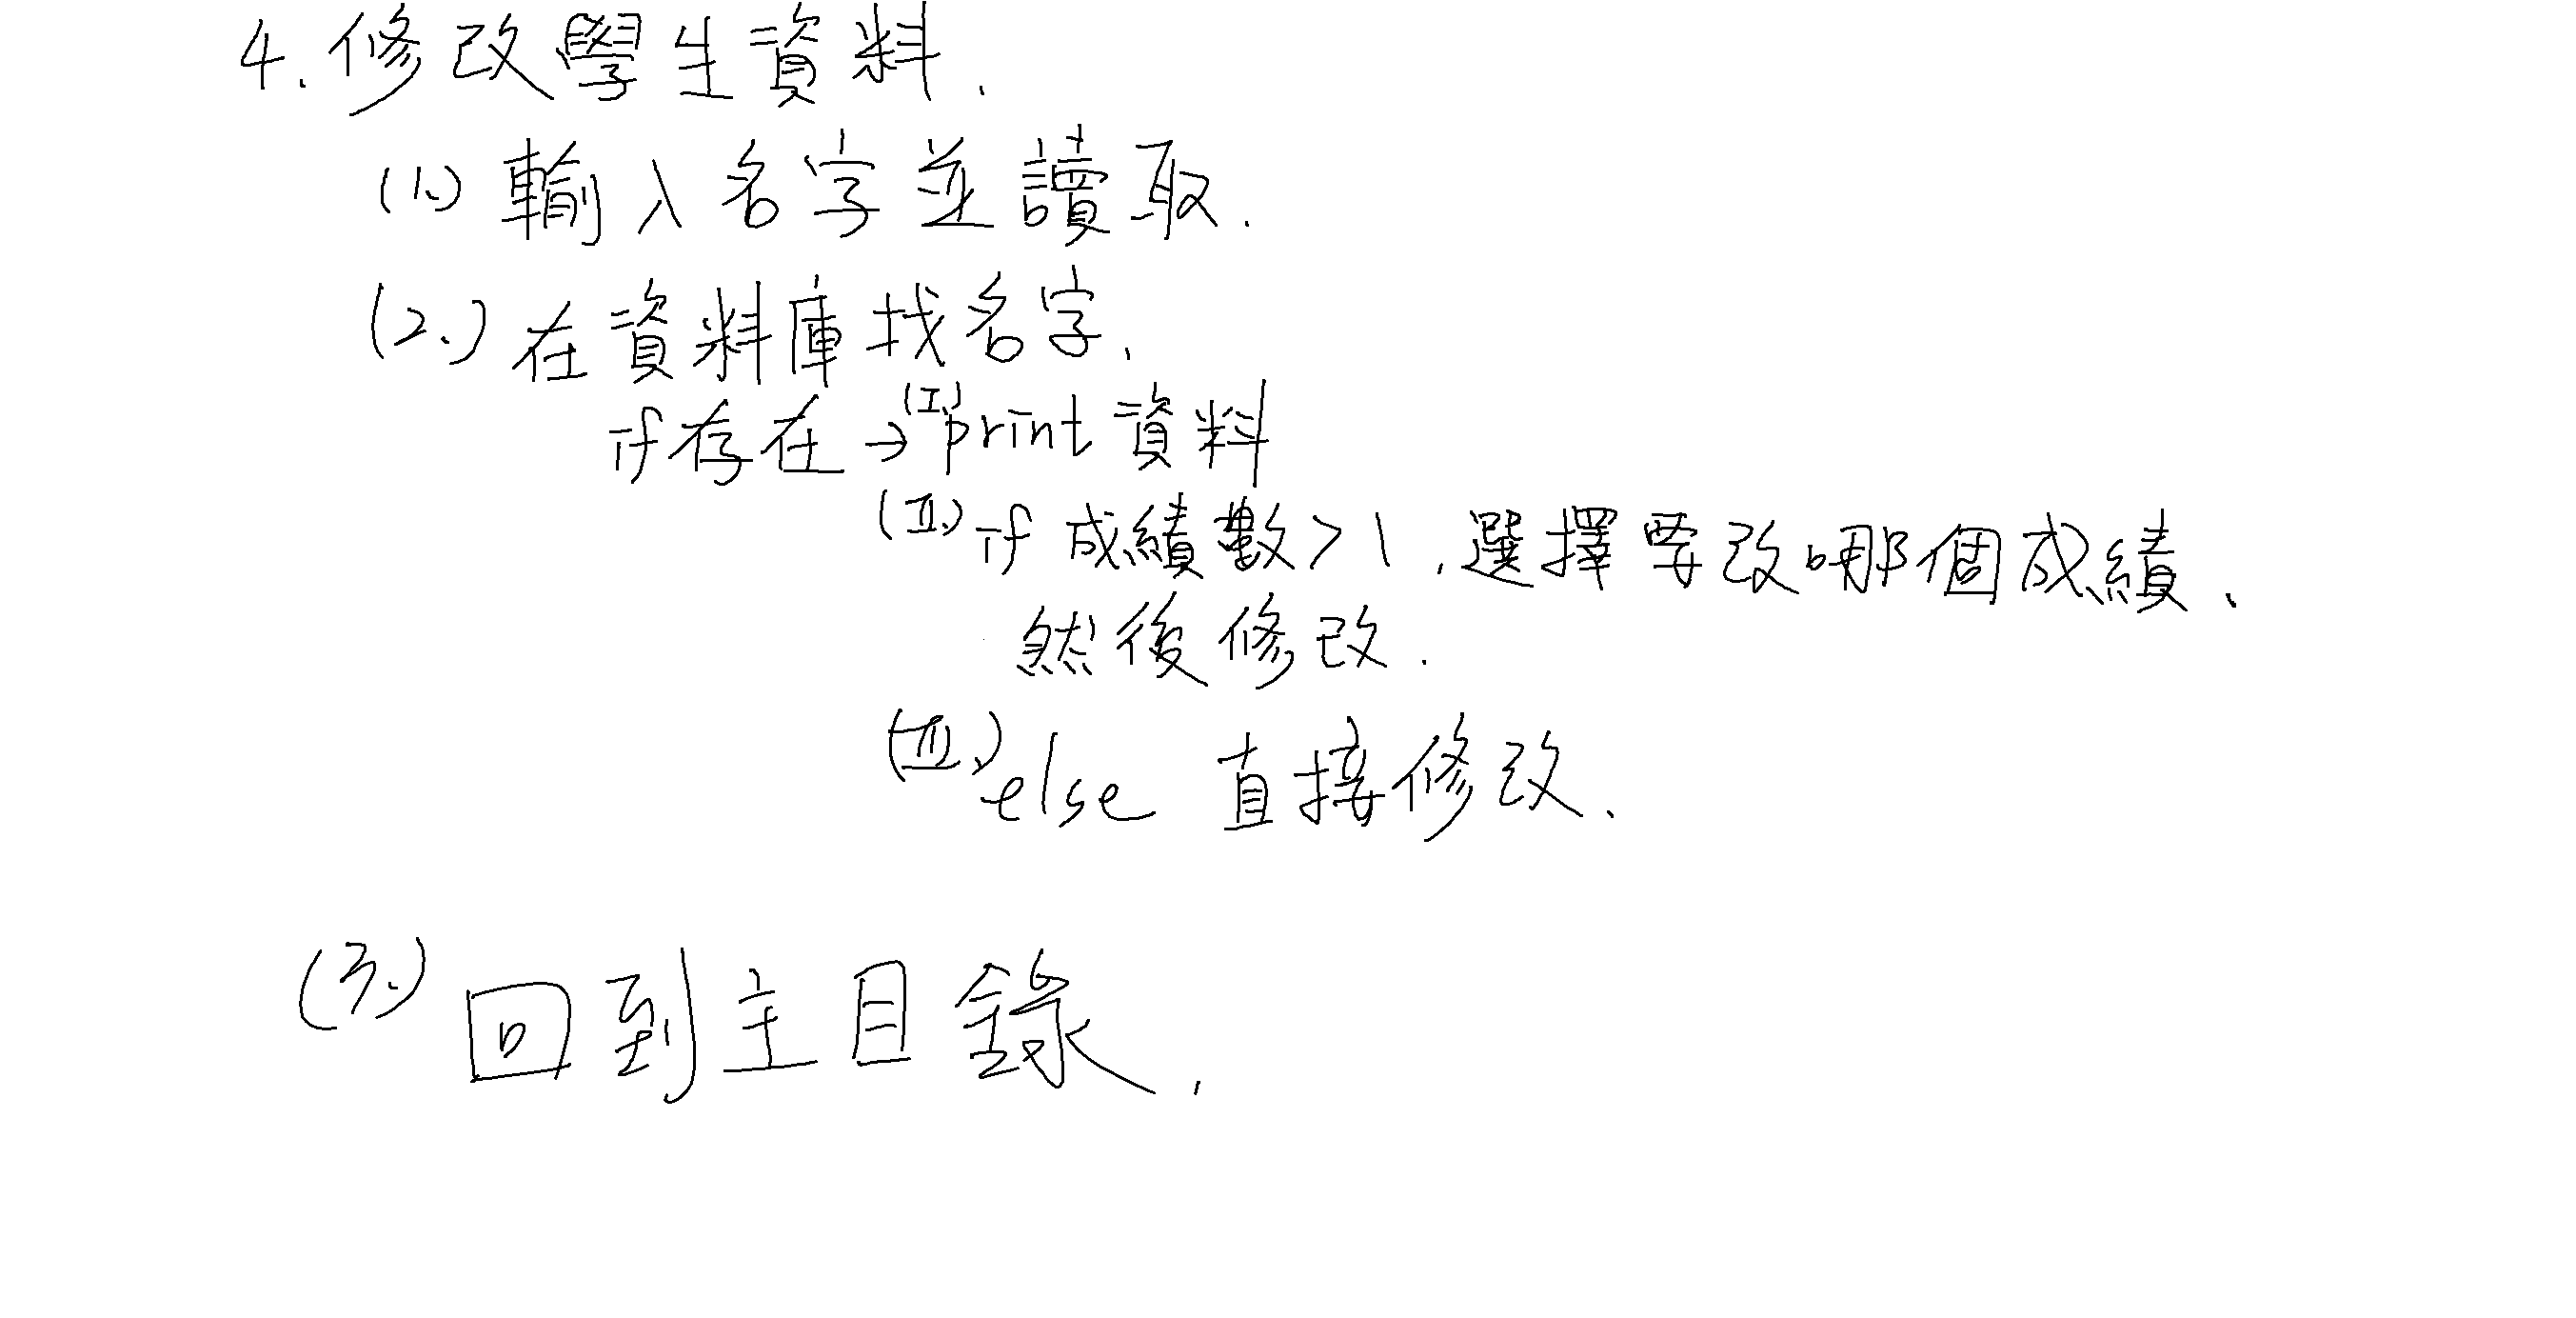 4. 修改學生資料.
(1.) 輸入名字並讀取.
(2.) 在資料庫找名字.
if存在→(I.)print資料
(II.) if 成績數>1,選擇要改哪個成績.
然後修改.
(III.) else 直接修改.
(3.) 回到主目錄.